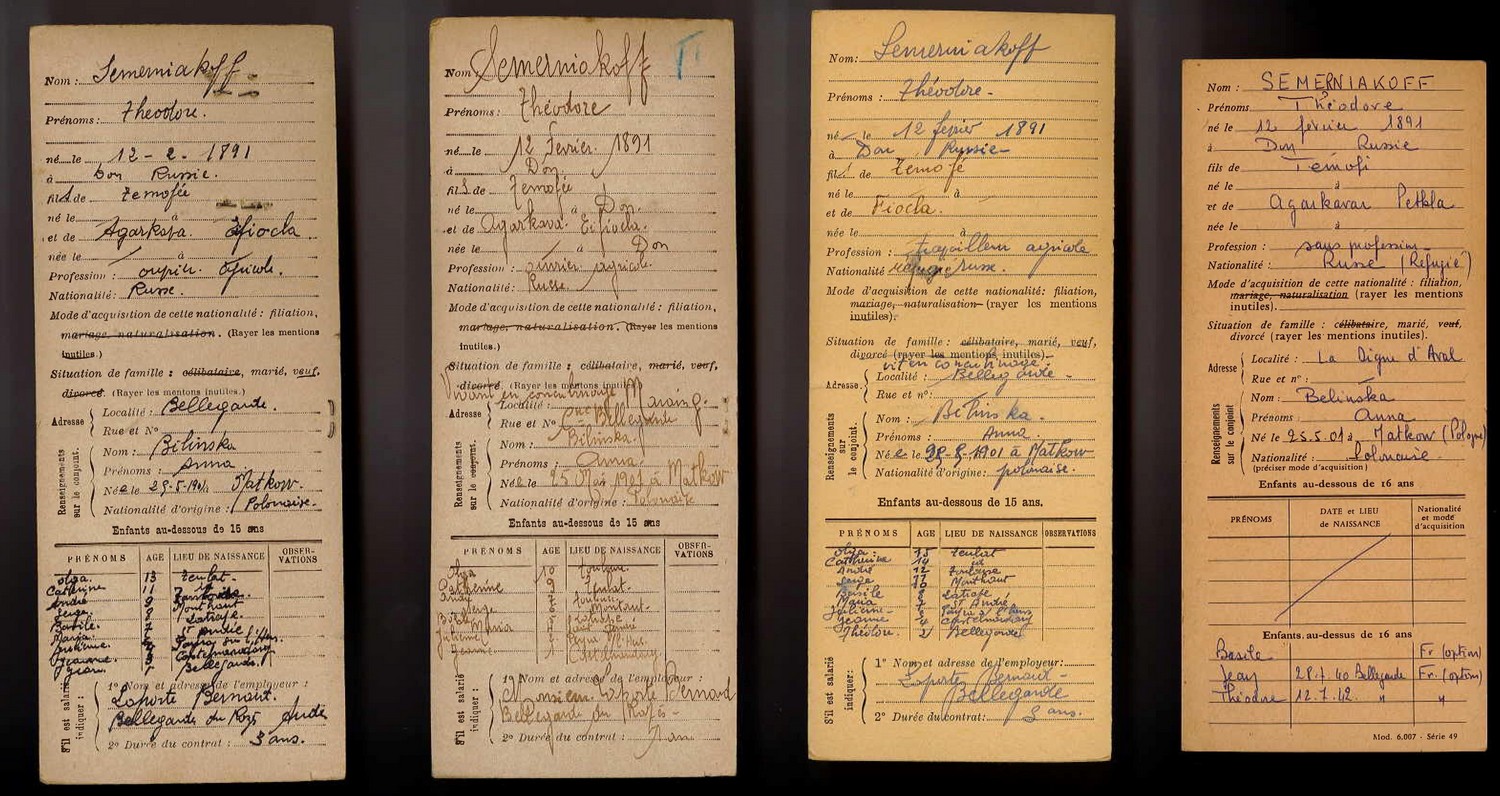 Nom : Semerniakoff
Prénoms : Théodore.
né le 12-2-1891
à Don Russie.
fils de Temofée
né le à
et de Agarkava. Efiocla.
née le à
Profession : ouvrier. agricole.
Nationalité : Russe.
Mode d'acquisition de cette nationalité : filiation,
mariage, naturalisation. (Rayer les mentions
inutiles.)
Situation de famille : célibataire, marié, veuf,
divorcé. (Rayer les mentions inutiles.)
Adresse
Localité : Bellegarde.
Rue et N°
Renseignements sur le conjoint.
Nom : Bilinska
Prénoms : Anna
Née le 25-5-1901 Matkow.
Nationalité d'origine : Polonaise.
Enfants au-dessous de 15 ans
PRÉNOMS AGE LIEU DE NAISSANCE OBSERVATIONS
Olga 13
Catherine 11
André 9
Serge. Monthaut
Basile. Latrape.
Maria. St André
Jeanne. Castelnaudary
Jean Bellegarde.
S'il est salarié indiquer :
1° Nom et adresse de l'employeur :
Laporte Bernard.
Bellegarde du Razès Aude
2° Durée du contrat : 3 ans.
Nom Semerniakoff
Prénoms : Théodore
né le 12 Février. 1891
à Don.
fils de Temofée
né le à Don.
et de Agarkava. Efiocla.
née le à Don
Profession : ouvrier agricole.
Nationalité : Russe.
Mode d'acquisition de cette nationalité : filiation,
mariage, naturalisation. (Rayer les mentions
inutiles.)
Situation de famille : célibataire, marié, veuf,
divorcé. (Rayer les mentions inutiles.)
Vivant en concubinage
Adresse
Localité :
Rue et N° Cne Bellegarde
Renseignements sur le conjoint.
Nom : Bilinska.
Prénoms : Anna.
Née le 25 Mai 1901 à Matkow
Nationalité d'origine : Polonaise
Enfants au-dessous de 15 ans
PRÉNOMS AGE LIEU DE NAISSANCE OBSERVATIONS
Olga 10
Catherine 9
André
Serge
Maria
Jeanne Castelnaudary
S'il est salarié indiquer :
1° Nom et adresse de l'employeur :
Monsieur Laporte Bernard
Bellegarde du Razès-
2° Durée du contrat : 1 an
Nom : Semerniakoff
Prénoms : Théodore-
né le 12 février 1891
à Don Russie-
fils de Temofé
né le à
et de Fiocla.
née le à
Profession : travailleur agricole
Nationalité réfugié russe.
Mode d'acquisition de cette nationalité : filiation,
mariage, naturalisation (rayer les mentions
inutiles).
Situation de famille : célibataire, marié, veuf,
divorcé (rayer les mentions inutiles).
vit en concubinage.
Adresse.
Localité : Bellegarde-
Rue et n° :
Renseignements sur le conjoint.
Nom : Bilinska.
Prénoms : Anna.
Née le 1901 à Matkow
Nationalité d'origine : polonaise.
Enfants au-dessous de 15 ans.
PRÉNOMS AGE LIEU DE NAISSANCE OBSERVATIONS
Olga 15
Catherine 14
André 12 Toulouse
Serge 11 Monthaut
Basile Latrape
Maria St André
Jeanne 4 Castelnaudary
Théodore. 2 Bellegarde
S'il est salarié indiquer :
1° Nom et adresse de l'employeur :
Laporte Bernard-
Bellegarde
2° Durée du contrat : 3 ans.
Nom : SEMERNIAKOFF
Prénoms Théodore
né le 12 février 1891
à Don Russie
fils de Temofi
né le à
et de Agarkavar Petkla
née le à
Profession : sans profession-
Nationalité : Russe (Refugié)
Mode d'acquisition de cette nationalité : filiation,
mariage, naturalisation (rayer les mentions
inutiles).
Situation de famille : célibataire, marié, veuf,
divorcé (rayer les mentions inutiles).
Adresse
Localité : La Digne d'Aval
Rue et n° :
Renseignements sur le conjoint
Nom : Belinska
Prénoms : Anna
Né le 25.5.01 à Matkow (Pologne)
Nationalité : Polonaise
(préciser mode d'acquisition)
Enfants au-dessous de 16 ans
PRÉNOMS DATE et LIEU de NAISSANCE Nationalité et mode d'acquisition
Enfants au-dessus de 16 ans
Basile Fr (option)
Jean 28.7.40 Bellegarde Fr. (option)
Théodore 12.7.42 " "
Mod. 6.007 - Série 49